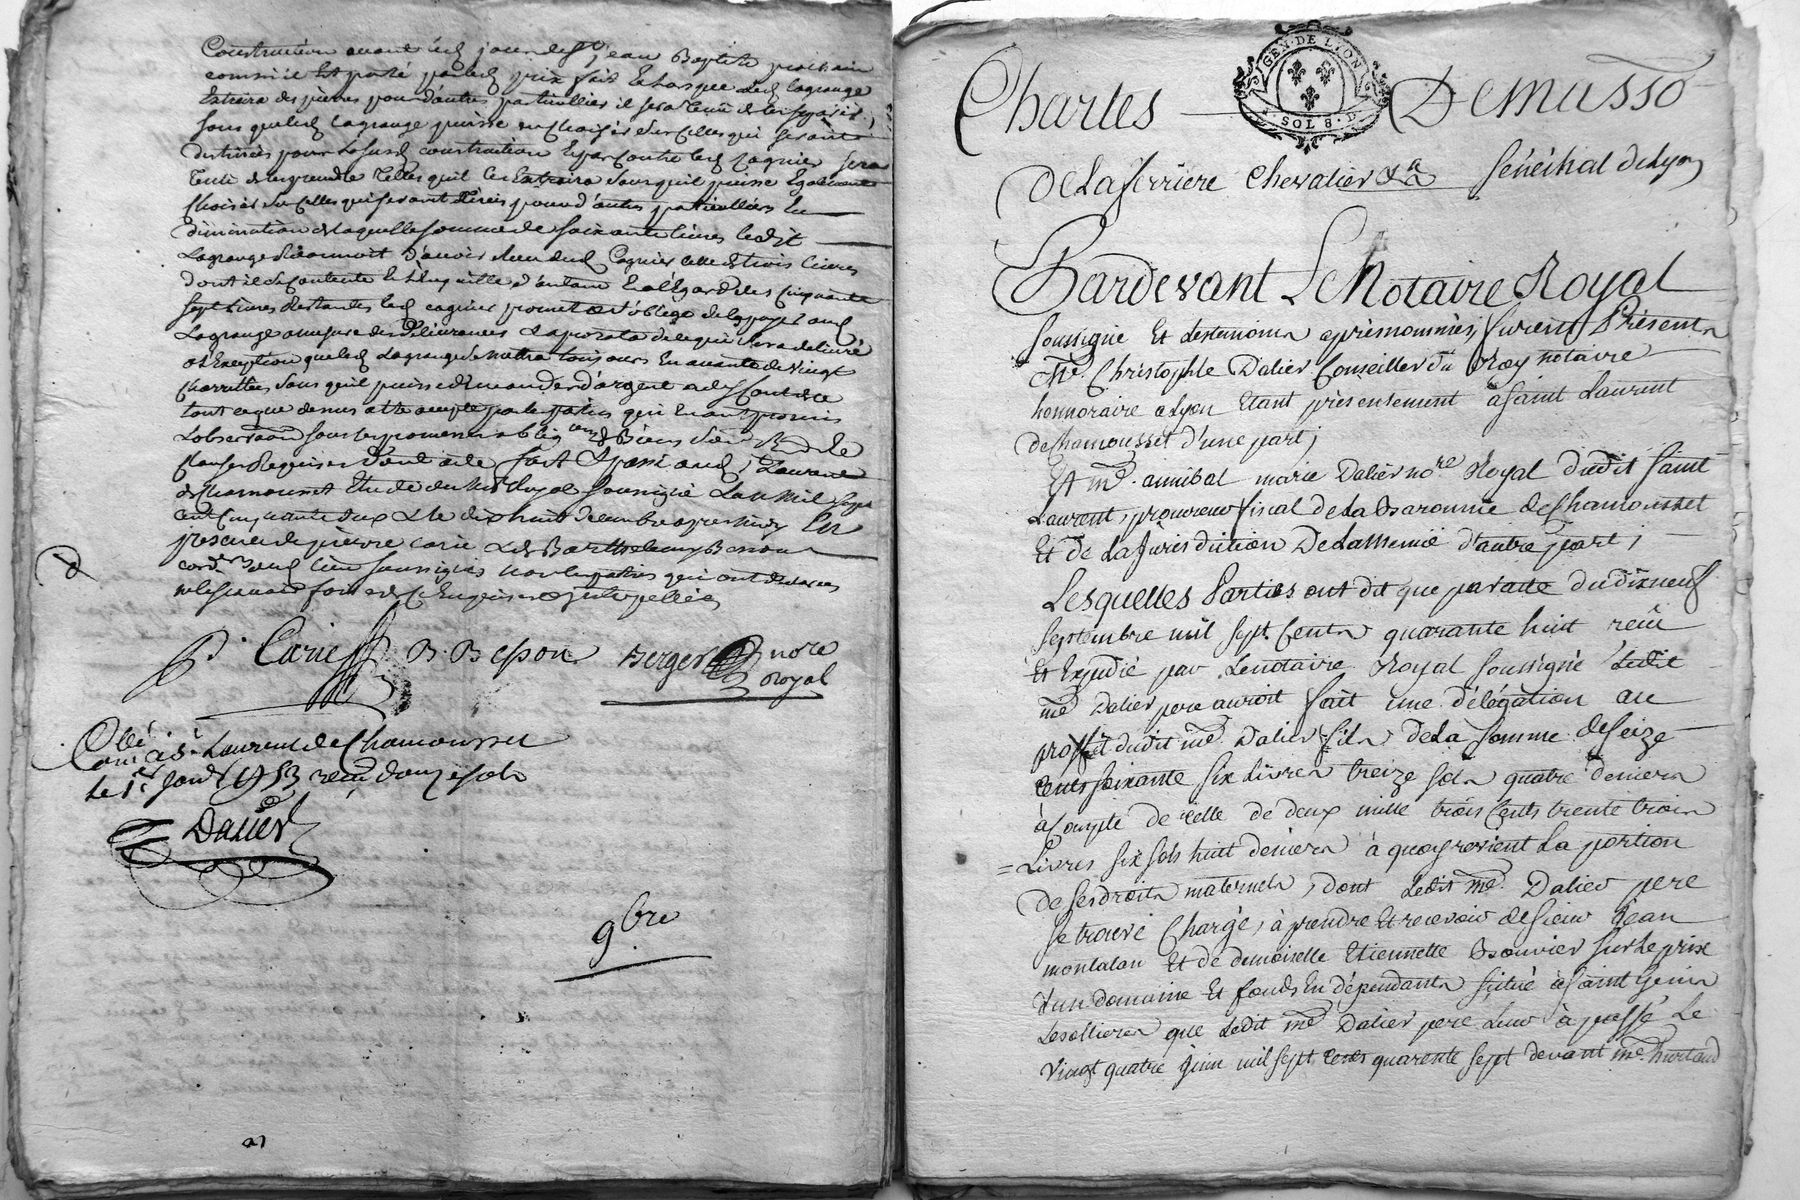 Construction avant led jour de St jean Baptiste prochain
comme il Est porté par led prix fait Et lorsque led lagrange
Extraira des pierres pour d'autres particulliers il sera tenu de les
sans que led lagrange puisse en choisir sur celles qui seront
destinées pour la susd construction Et par contre led Cagnier sera
tenu de les prendre telles qu'il les Extraira sans qu'il puisse Egalement
choisir sur celles qui seront tirées pour d'autres particulliers En
diminution de laquelle somme de soixante livres ledit
Lagrange reconnoit d'avoir receu dud Cagnier celle de trois livres
dont il se contente Et l'En quitte d'autant Et a l'Egard des cinquante
sept livres restantes led cagnier promet & s'oblige de les payer aud
Lagrange a mesure des délivrances & a prorata de ce qui sera délivré
a l'Exception que led Lagrange se mettra toujours En avante de vingt
charrettées sans qu'il puisse demander d'argent
tout ce que dessus a Eté accepté par les parties qui En ont promis
L'observaon sous les promesses obligons de Biens
clauses Requises Dont acte fait & passé aud St Laurent
de Chamousset Etude du nre Royal soussigné L'an mil sept
cent cinquante deux & le dix huit decembre apres midy En
presence de pierre carie & de Barthelemy Besson
cordr aud lieu soussignés non les parties qui ont déclaré
ne le savoir faire de ce Enquises & interpellées
P. Carie B. Besson Berger nore
Royal
Colé
à St Laurent de Chamousset
le 1er janr 1753 reçu douze sols
Dalier
9bre
Charles Demasso
GEN. DE LYON
SOLS 8 D
De Laferriere Chevalier &a Sénéchal de Lyon
Pardevant Le Notaire Royal
soussigné Et des temoins aprèsnommés, furent Présents
Me. Christophle Dalier Conseiller du Roy notaire
honnoraire a Lyon Etant présentement à saint Laurent
de Chamousset d'une part;
Et me. annibal marie Dalier nore Royal dudit saint
Laurent, procureur fiscal de la Baronnie de Chamousset
Et de la jurisdiction De Lamenüe d'autre part;
Lesquelles Parties ont dit que par acte du dixneuf
septembre mil sept cents quarante huit reçû
Et Expédié par Le notaire Royal soussigné ledit
me Dalier pere auroit fait une délégation au
proffit dudit me Dalier fils de la somme de seize
cents soixante six Livres treize sols quatre deniers
à compte de celle de deux mille trois cents trente trois
= Livres six sols huit deniers à quoy revient La portion
de ses droits maternels, dont Ledit me. Dalier pere
se trouve Chargé, à prendre Et recevoir de sieur jean
montalan Et de demoiselle Etiennette Bouvier sur le prix
d'un domaine Et fonds En dépendants situé à saint Genis
Lesollieres que Ledit me Dalier pere Leur à passé Le
vingt quatre juin mil sept cents quarente sept devant me. hurtaud